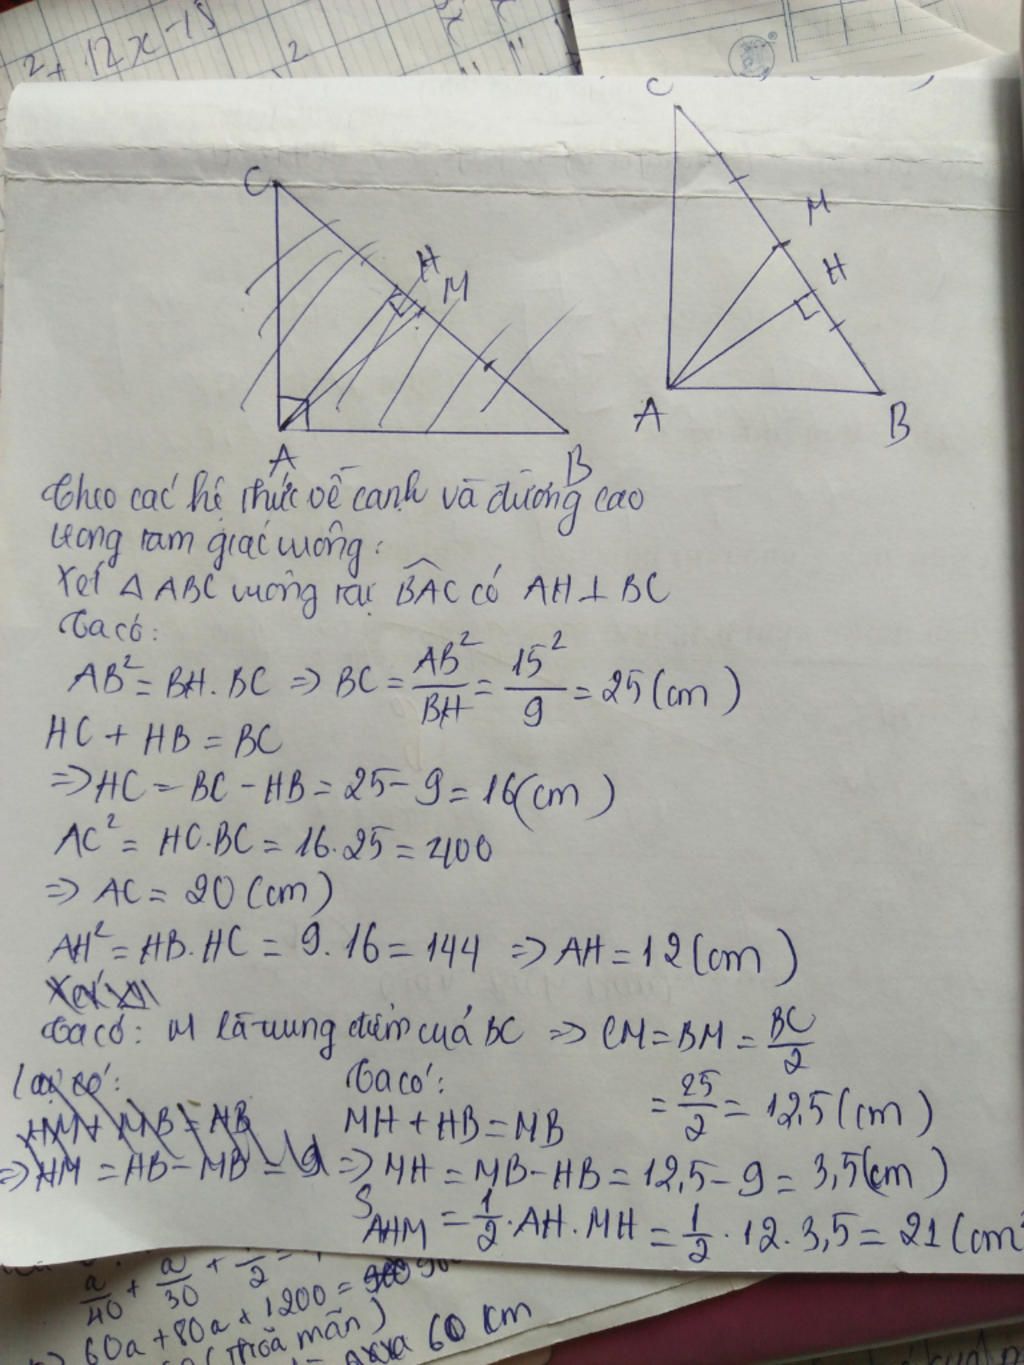 2 + 12x - 15
2
C
H
M
A
B
C
M
H
A
B
Theo các hệ thức về cạnh và đường cao
trong tam giác vuông:
Xét △ ABC vuông tại BAC có AH ⊥ BC
Ta có:
AB² = BH . BC => BC = AB²/BH = 15²/9 = 25 (cm)
HC + HB = BC
=> HC = BC - HB = 25 - 9 = 16 (cm)
AC² = HC.BC = 16.25 = 400
=> AC = 20 (cm)
AH² = HB.HC = 9.16 = 144 => AH = 12 (cm)
Ta có: M là trung điểm của BC => CM = BM = BC/2
= 25/2 = 12,5 (cm)
Lại có:
HM + MB = HB
=> HM = HB - MB = 9
Ta có:
MH + HB = MB
=> MH = MB - HB = 12,5 - 9 = 3,5 (cm)
S AHM = 1/2 . AH . MH = 1/2 . 12 . 3,5 = 21 (cm²
a/40 + a/30 +
60a + 80a + 1200 =
(thỏa mãn)
60 km